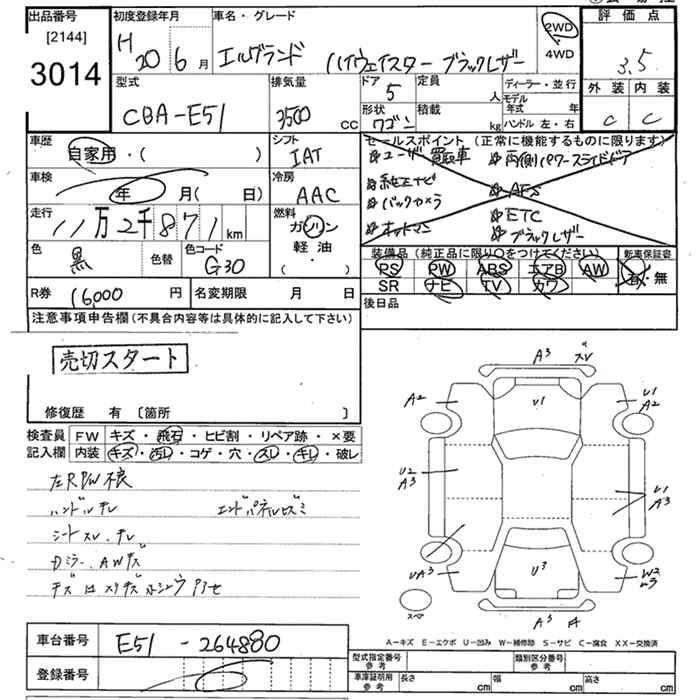 出品番号
[2144]
3014
初度登録年月
H 20 6 月
車名・グレード
エルグランド ハイウェイスター ブラックレザー
2WD
4WD
評価点
3.5
外装 内装
C C
型式
CBA-E51
排気量
3500 cc
ドア
5
形状
ワゴン
定員
人
積載
kg
ディーラー・並行
モデル年式 年
ハンドル 左・右
車歴
自家用・( )
シフト
IAT
車検
年 月( 日)
冷房
AAC
走行
11万2千871 km
燃料
ガソリン
軽油・
( )
色
黒
色替
色コード
G30
セールスポイント (正常に機能するものに限ります)
ユーザー買取車 両側パワースライドドア
純正ナビ AFS
バックカメラ ETC
オットマン ブラックレザー
装備品 (純正品に限り○をつけてください) 新車保証書
PS PW ABS エアB AW 有・無
SR ナビ TV カワ
R券 16,000 円
名変期限 月 日
後日品
注意事項申告欄 (不具合内容等は具体的に記入して下さい)
売切スタート
修復歴 有 〔箇所 〕
検査員 FW キズ・飛石・ヒビ割・リペア跡・×要
記入欄 内装 キズ・汚レ・コゲ・穴・スレ・キレ・破レ
左RPW不良
ハンドルキレ エンドパネルヒズミ
シートスレ、キレ
Dミラー、AWキズ
A3 スレ
A2 U1 U1 A2
U2 A3 U1 A3
UA3 U3 W2
スペア A3
A-キズ E-エクボ U-凹み W-補修跡 S-サビ C-腐食 XX-交換済
車台番号 E51-264880
登録番号
型式指定番号 参考
類別区分番号 参考
車庫証明用 参考 長さ cm 幅 cm 高さ cm